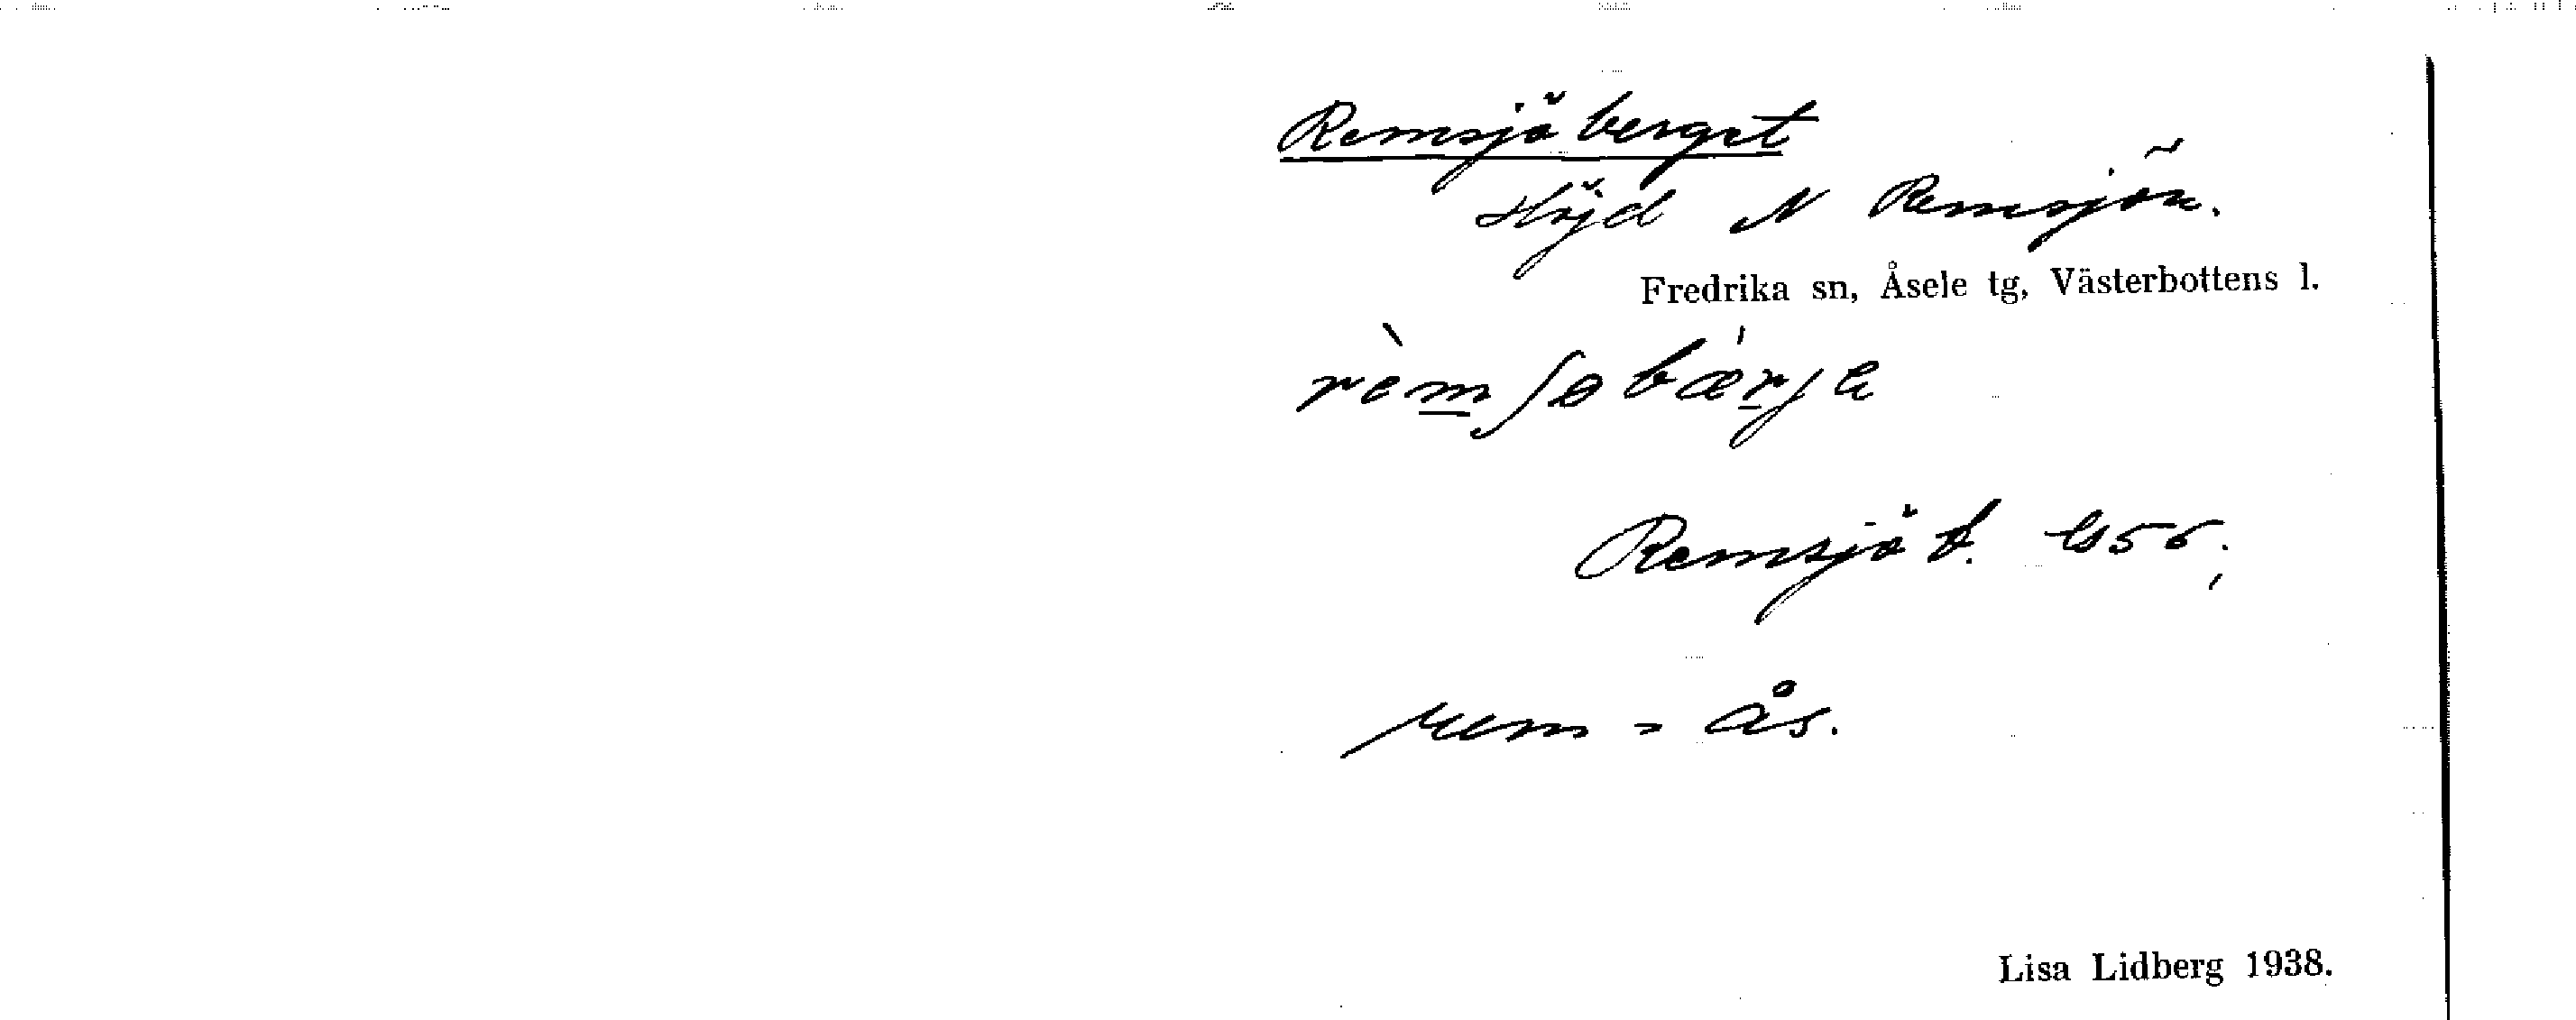 Remsjöberget
Höjd N Remsjön.
Fredrika sn, Åsele tg, Västerbottens l.
rèmʃøbæ̀rjɑ
Remsjö b. Gs 55;
rem = ås.
Lisa Lidberg 1938.